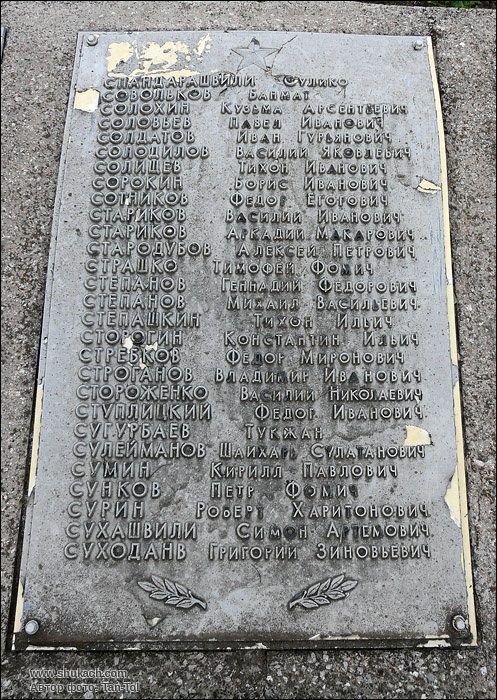 СПАНДАРАШВИЛИ СУЛИКО
СОВОЛЬКОВ БАНМАТ
СОЛОХИН КУЗЬМА АРСЕНТЬЕВИЧ
СОЛОВЬЕВ ПАВЕЛ ИВАНОВИЧ
СОЛДАТОВ ИВАН ГУРЬЯНОВИЧ
СОЛОДИЛОВ ВАСИЛИЙ ЯКОВЛЕВИЧ
СОЛИЩЕВ ТИХОН ИВАНОВИЧ
СОРОКИН БОРИС ИВАНОВИЧ
СОТНИКОВ ФЕДОР ЕГОРОВИЧ
СТАРИКОВ ВАСИЛИЙ ИВАНОВИЧ
СТАРИКОВ АРКАДИЙ МАКАРОВИЧ
СТАРОДУБОВ АЛЕКСЕЙ ПЕТРОВИЧ
СТРАШКО ТИМОФЕЙ ФОМИЧ
СТЕПАНОВ ГЕННАДИЙ ФЕДОРОВИЧ
СТЕПАНОВ МИХАИЛ ВАСИЛЬЕВИЧ
СТЕПАШКИН ТИХОН ИЛЬИЧ
КОНСТАНТИН ИЛЬИЧ
СТРЕБКОВ ФЕДОР МИРОНОВИЧ
СТРОГАНОВ ВЛАДИМИР ИВАНОВИЧ
СТОРОЖЕНКО ВАСИЛИЙ НИКОЛАЕВИЧ
СТУПЛИЦКИЙ ФЕДОГ ИВАНОВИЧ
СУГУРБАЕВ ТУКЖАН
СУЛЕЙМАНОВ ШАИХАРЬ СУЛАТАНОВИЧ
СУМИН КИРИЛЛ ПАВЛОВИЧ
СУНКОВ ПЕТР ФОМИЧ
СУРИН РОБЕРТ ХАРИТОНОВИЧ
СУХАШВИЛИ СИМОН АРТЕМОВИЧ
СУХОДАНВ ГРИГОРИЙ ЗИНОВЬЕВИЧ
www.shukach.com
Автор фото: Tan-Tol